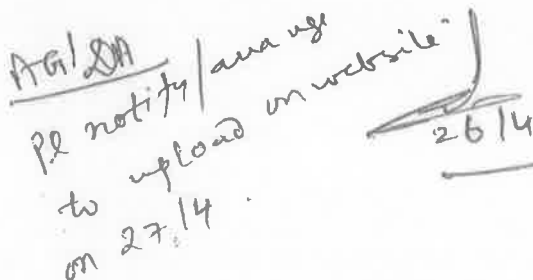 AG/SDA
Pl notify/arrange
to upload on website
on 27/4.
26/4